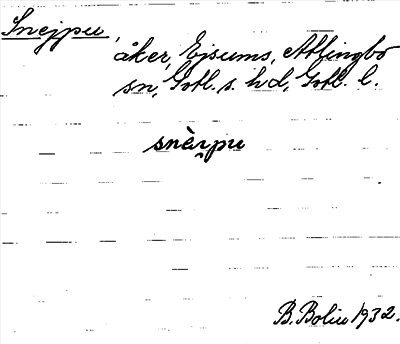 Snejpu,
åker, Ejsums, Atlingbo
sn, Gotl. s. hd, Gotl. l.
snèi̯pu
B. Bolin 1932.